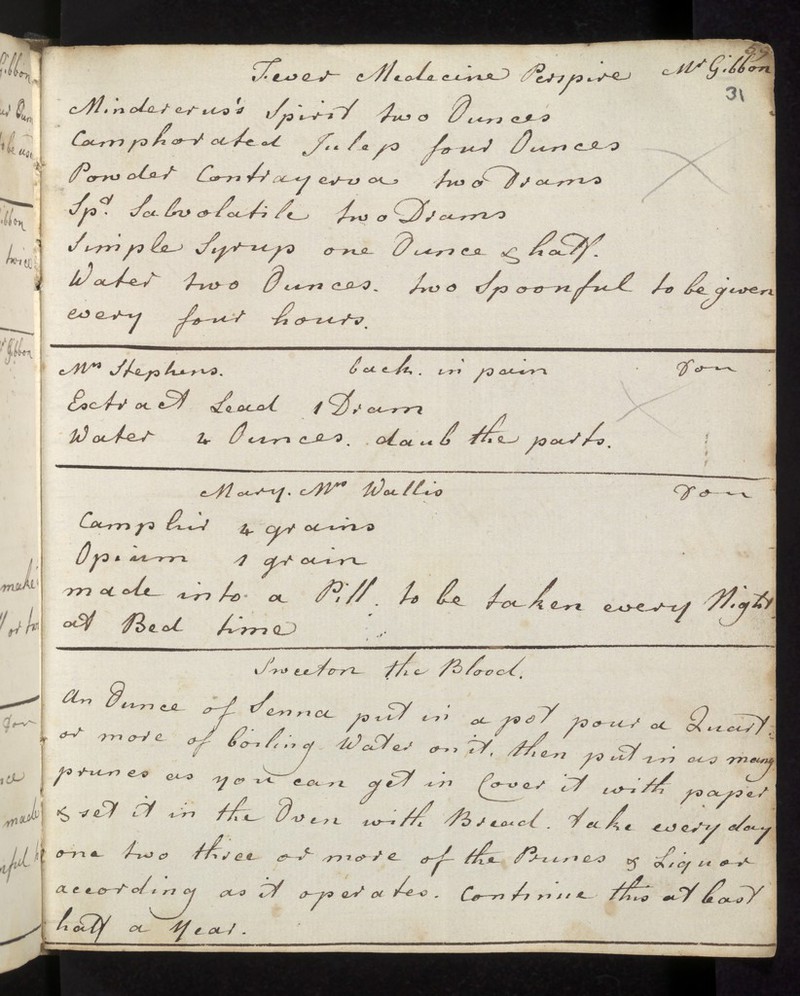 59
Fever Medecine Perspire Mr Gibbon
31
Mindererus's Spirit two Ounces
Camphorated Julep four Ounces
Powder Contrayerva two Drams
Spt. Salvolatile two Drams
Simple Syrup one Ounce & half.
Water two Ounces. two Spoonful to be given
every four hours.
Mrs Stephens. back. in pain Don
Esctract Lead 1 Dram
Water 4 Ounces. daub the parts.
Mary. Mrs Wallis Don
Camphir 4 grains
Opium 1 grain
made into a Pill. to be taken every Night
at Bed time
Sweeton the Blood.
An Ounce of Senna put in a pot pour a Quart
or more of boiling Water on it. then put in as many
prunes as you can get in Cover it with paper
& set it in the Oven with Bread. take every day
one two three or more of the Prunes & Liquor
according as it operates. Continue this at least
half a Year.